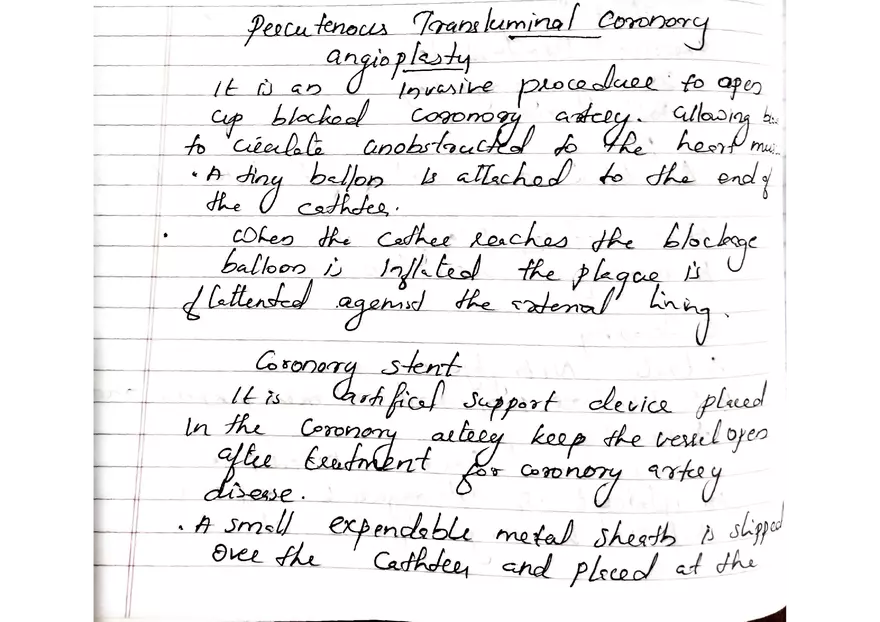 Peecutenous Transluminal Coronory
angioplasty
It is an invasive procedure to open
up blocked coronory artey. allowing
to circulate anobstructed to the heart
• A tiny ballon is attached to the end of
the cathtee.
• When the cathee reaches the blockage
balloon is inflated the plaque is
flattented agenist the raterial lining.
Coronory stent
It is artifical support device placed
in the coronory aeteey keep the vessel open
after treatment for coronory artey
disease.
• A small expendable metal sheath is slipped
over the Cathteer and placed at the